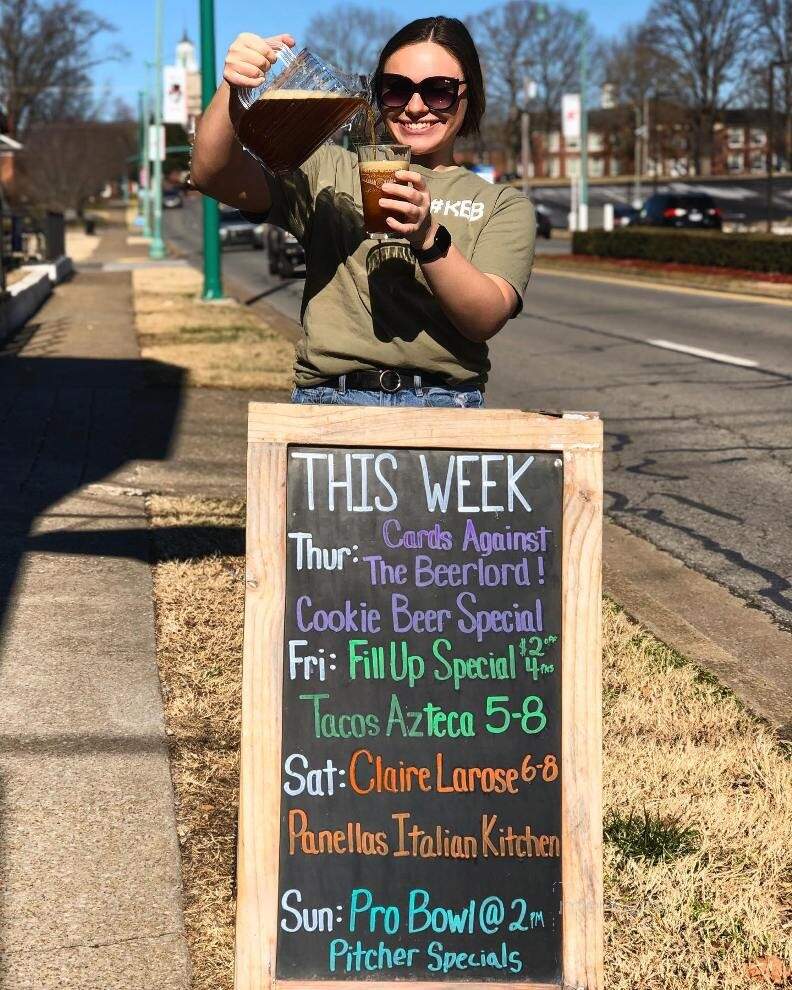 #KEB
THIS WEEK
Thur: Cards Against
The Beerlord!
Cookie Beer Special
Fri: Fill Up Special $2 off 4pks
Tacos Azteca 5-8
Sat: Claire Larose 6-8
Panellas Italian Kitchen
Sun: Pro Bowl @ 2PM
Pitcher Specials